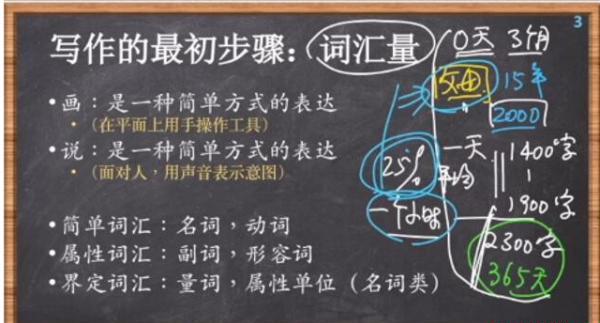 3
写作的最初步骤：词汇量
• 画：是一种简单方式的表达
• （在平面上用手操作工具）
• 说：是一种简单方式的表达
• （面对人，用声音表示意图）
• 简单词汇：名词，动词
• 属性词汇：副词，形容词
• 界定词汇：量词，属性单位（名词类）
0天 3个月
15年
2000
25%
一天
平均
1400字
1900字
一个小时
2300字
365天